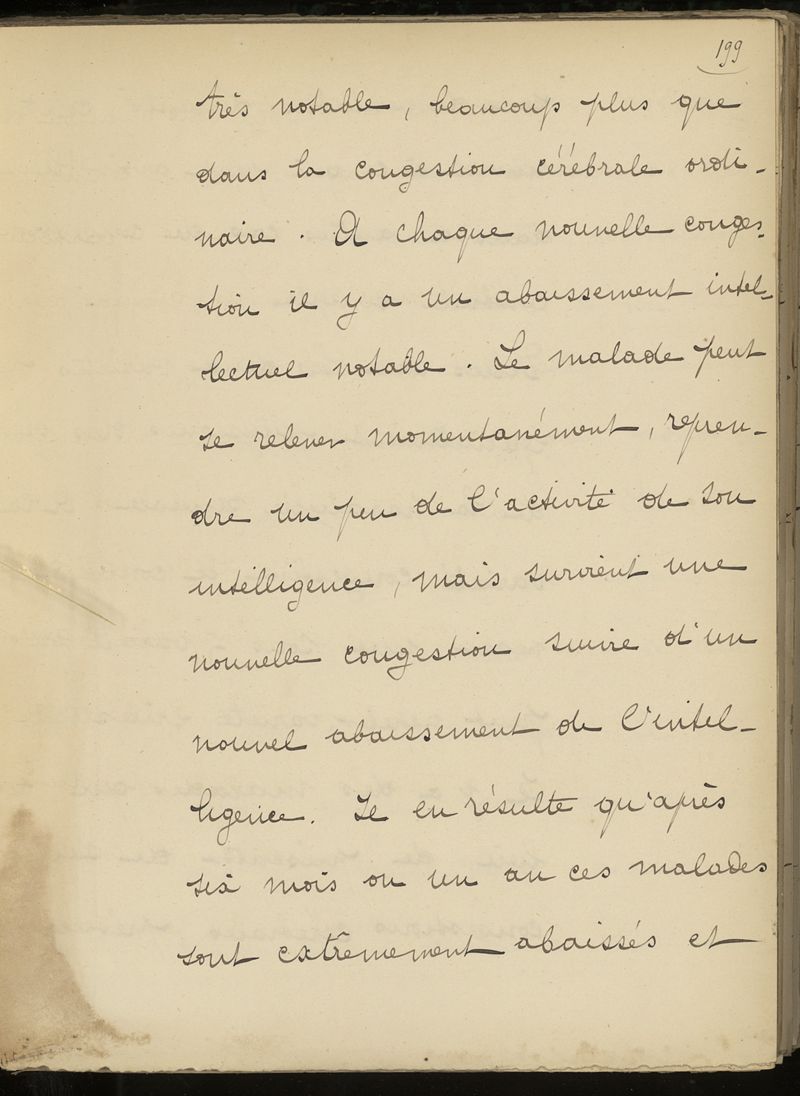 199
très notable, beaucoup plus que
dans la congestion cérébrale ordi-
naire. A chaque nouvelle conges-
tion il y a un abaissement intel-
lectuel notable. Le malade peut
se relever momentanément, repren-
dre un peu de l'activité de son
intelligence, mais survient une
nouvelle congestion suivie d'un
nouvel abaissement de l'intel-
ligence. Il en résulte qu'après
six mois ou un an ces malades
sont extrêmement abaissés et